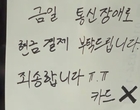 금일 통신장애로
현금결제 부탁드립니다
죄송합니다 ㅠㅠ
카드 X